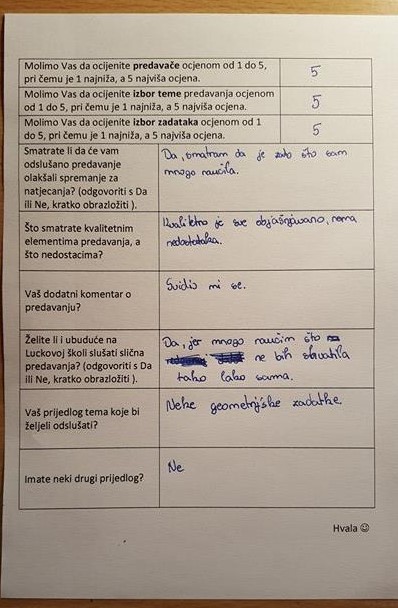 Molimo Vas da ocijenite predavače ocjenom od 1 do 5,
pri čemu je 1 najniža, a 5 najviša ocjena.
5
Molimo Vas da ocijenite izbor teme predavanja ocjenom
od 1 do 5, pri čemu je 1 najniža, a 5 najviša ocjena.
5
Molimo Vas da ocijenite izbor zadataka ocjenom od 1
do 5, pri čemu je 1 najniža, a 5 najviša ocjena.
5
Smatrate li da će vam
odslušano predavanje
olakšali spremanje za
natjecanja? (odgovoriti s Da
ili Ne, kratko obrazložiti ).
Da, smatram da je zato što sam
mnogo naučila.
Što smatrate kvalitetnim
elementima predavanja, a
što nedostacima?
Kvalitetno je sve objašnjavano, nema
nedostataka.
Vaš dodatni komentar o
predavanju?
Svidio mi se.
Želite li i ubuduće na
Luckovoj školi slušati slična
predavanja? (odgovoriti s Da
ili Ne, kratko obrazložiti ).
Da, jer mnogo naučim što
ne bih shvatila
tako lako sama.
Vaš prijedlog tema koje bi
željeli odslušati?
Neke geometrijske zadatke.
Imate neki drugi prijedlog?
Ne
Hvala ☺